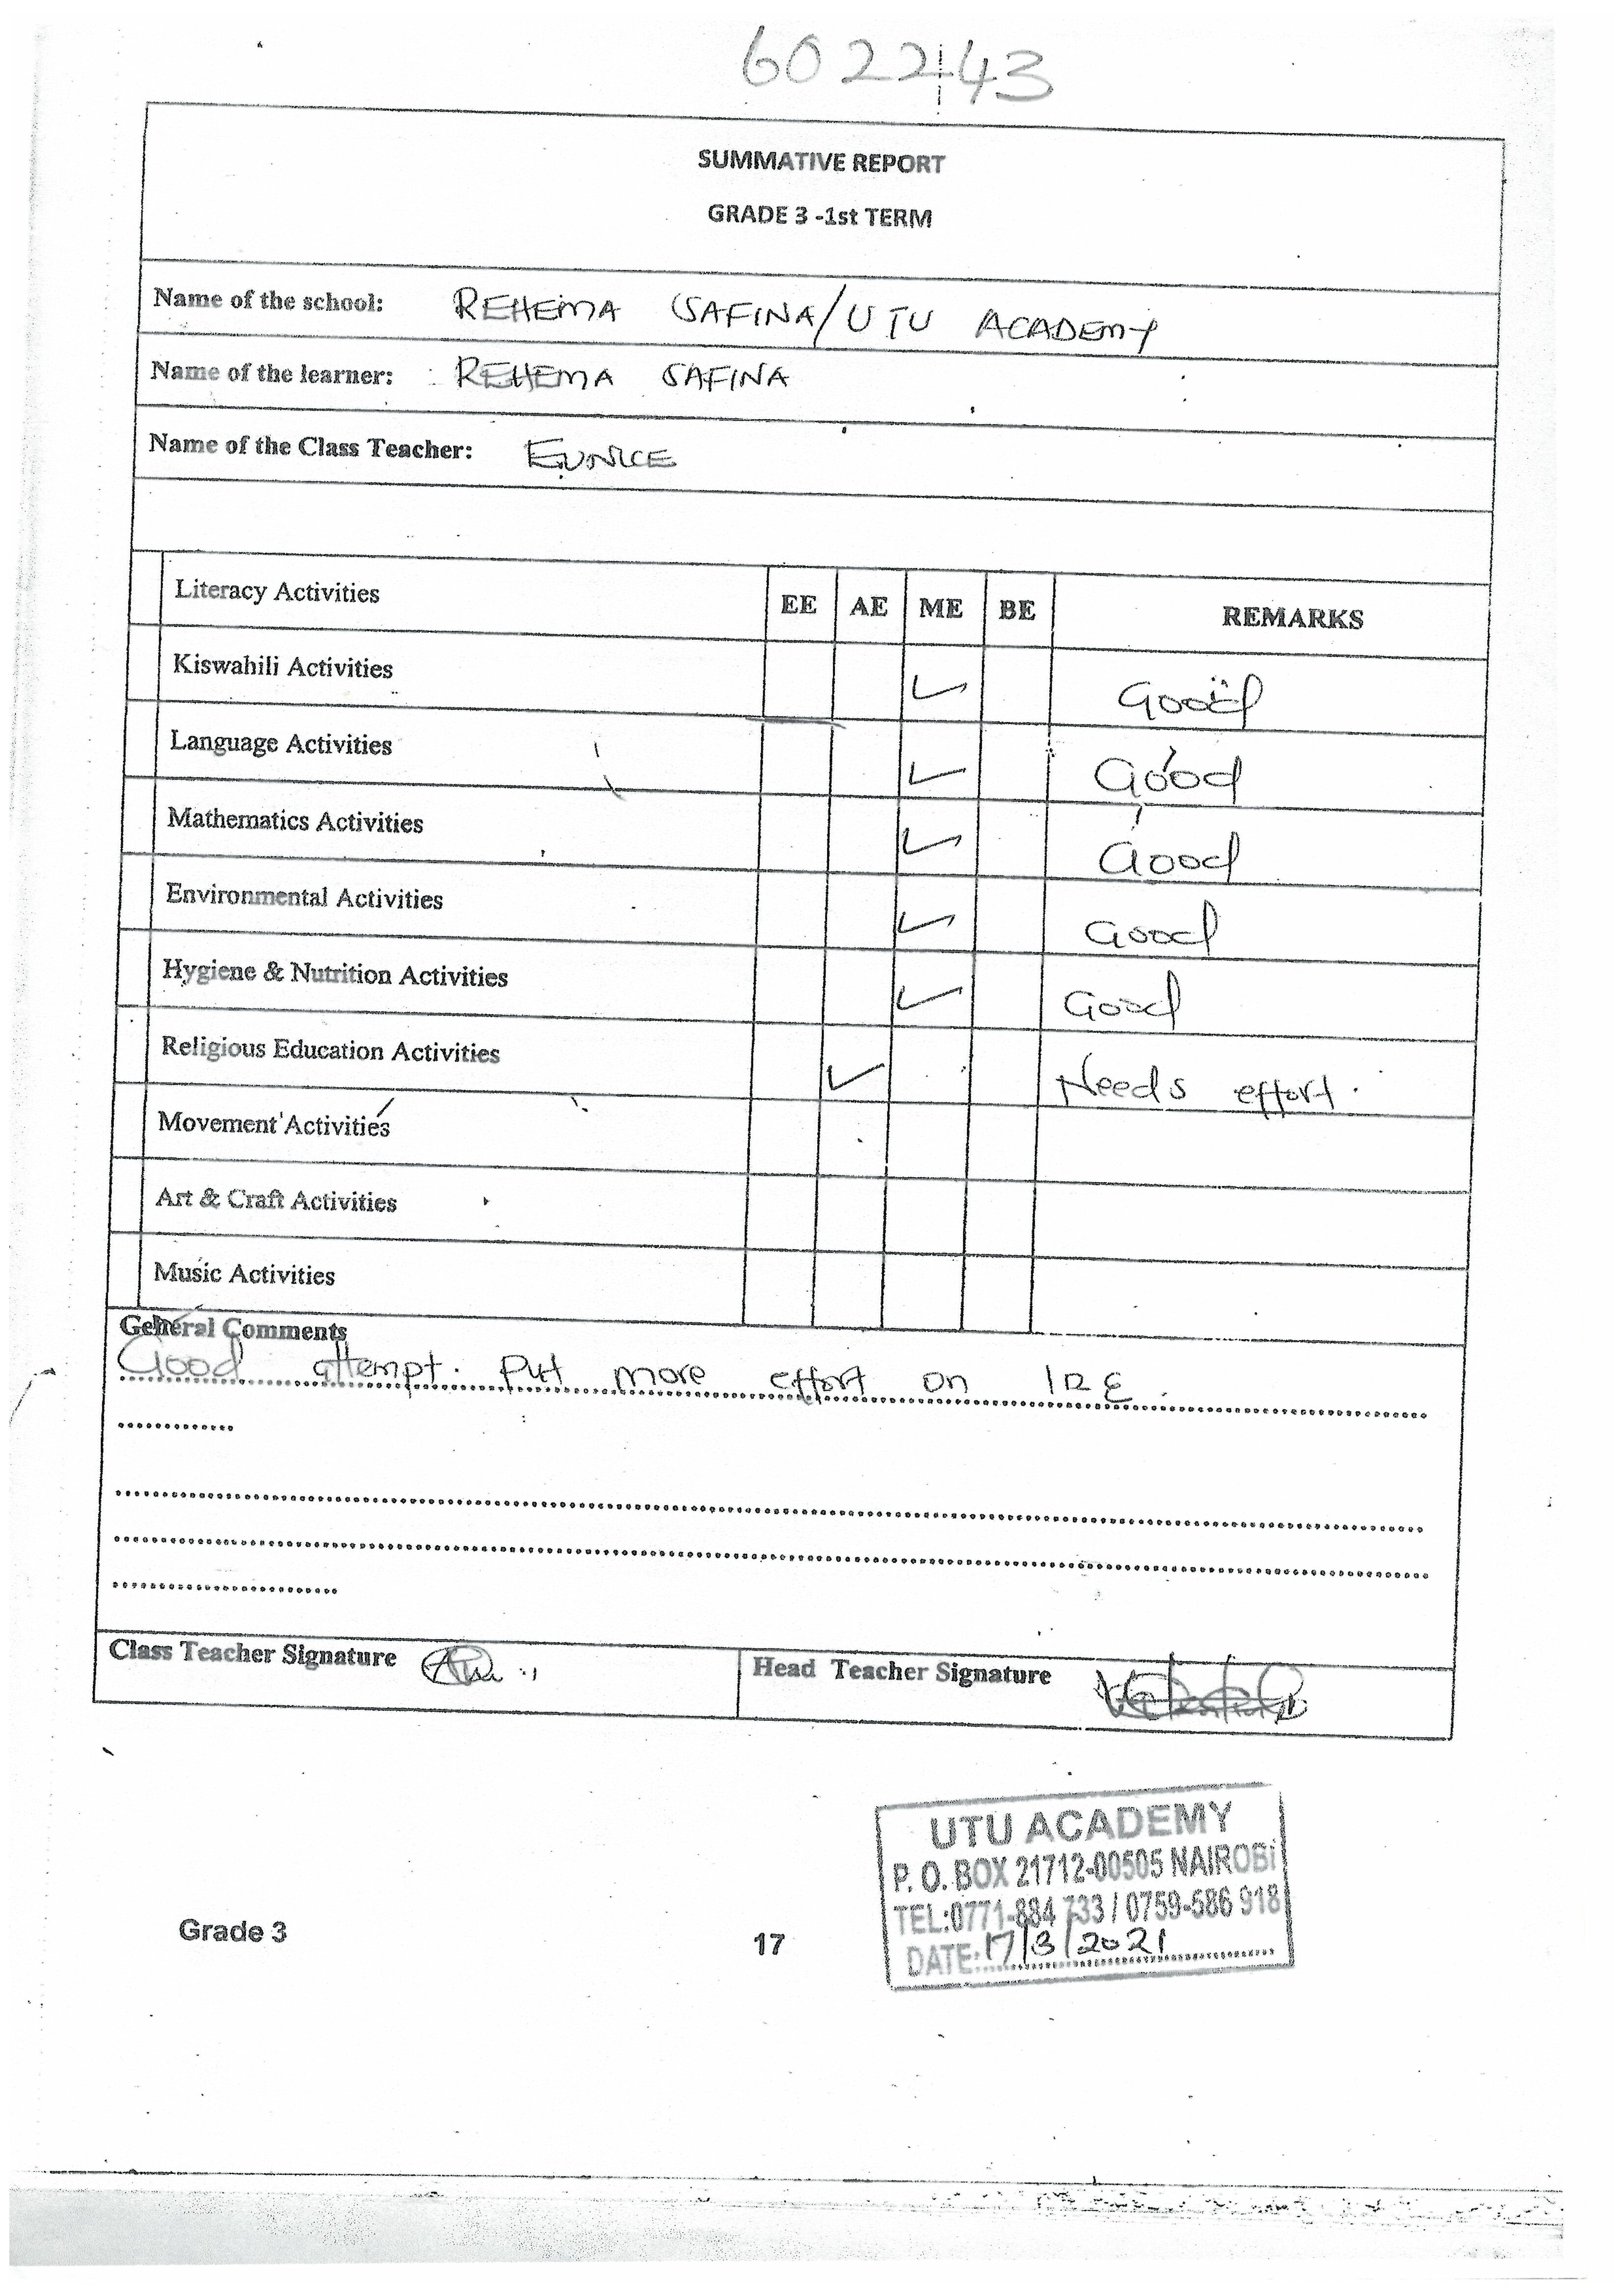 602243
SUMMATIVE REPORT
GRADE 3 -1st TERM
Name of the school: REHEMA SAFINA/UTU ACADEMY
Name of the learner: REHEMA SAFINA
Name of the Class Teacher: EUNICE
Literacy Activities EE AE ME BE REMARKS
Kiswahili Activities ✓ Good
Language Activities ✓ Good
Mathematics Activities ✓ Good
Environmental Activities ✓ Good
Hygiene & Nutrition Activities ✓ Good
Religious Education Activities ✓ Needs effort.
Movement Activities
Art & Craft Activities
Music Activities
General Comments
Good attempt. Put more effort on IRE.
Class Teacher Signature Head Teacher Signature
UTU ACADEMY
P. O. BOX 21712-00505 NAIROBI
TEL:0771-884 733 / 0759-586 918
DATE: 17/3/2021
Grade 3 17